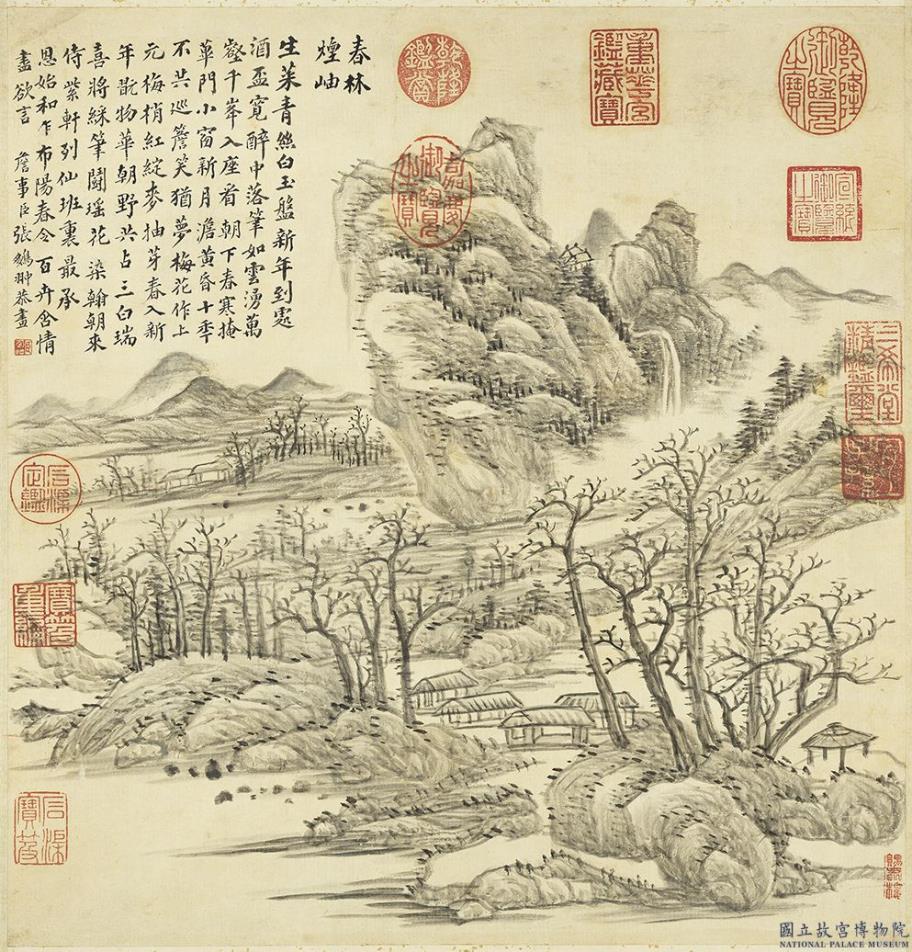 春林
煙岫
生菜青絲白玉盤新年到處
酒盃寬醉中落筆如雲湧萬
壑千峯入座看 朝下春寒掩
蓽門小窗新月澹黃昏十季
不共巡簷笑猶夢梅花作上
元 梅梢紅綻麥抽芽春入新
年 物華朝野共占三白瑞
喜將綵筆鬪瑤花 染翰朝來
侍紫軒列仙班裏最承
恩始和乍布陽春令百卉含情
盡欲言 詹事臣張鵬翀恭畫
乾隆御覽之寶
重華宮鑑藏寶
乾隆鑑賞
嘉慶御覽之寶
宣統御覽之寶
三希堂精鑑璽
宜子孫
石渠定鑑
寶笈重編
石渠寶笈
國立故宮博物院
NATIONAL PALACE MUSEUM